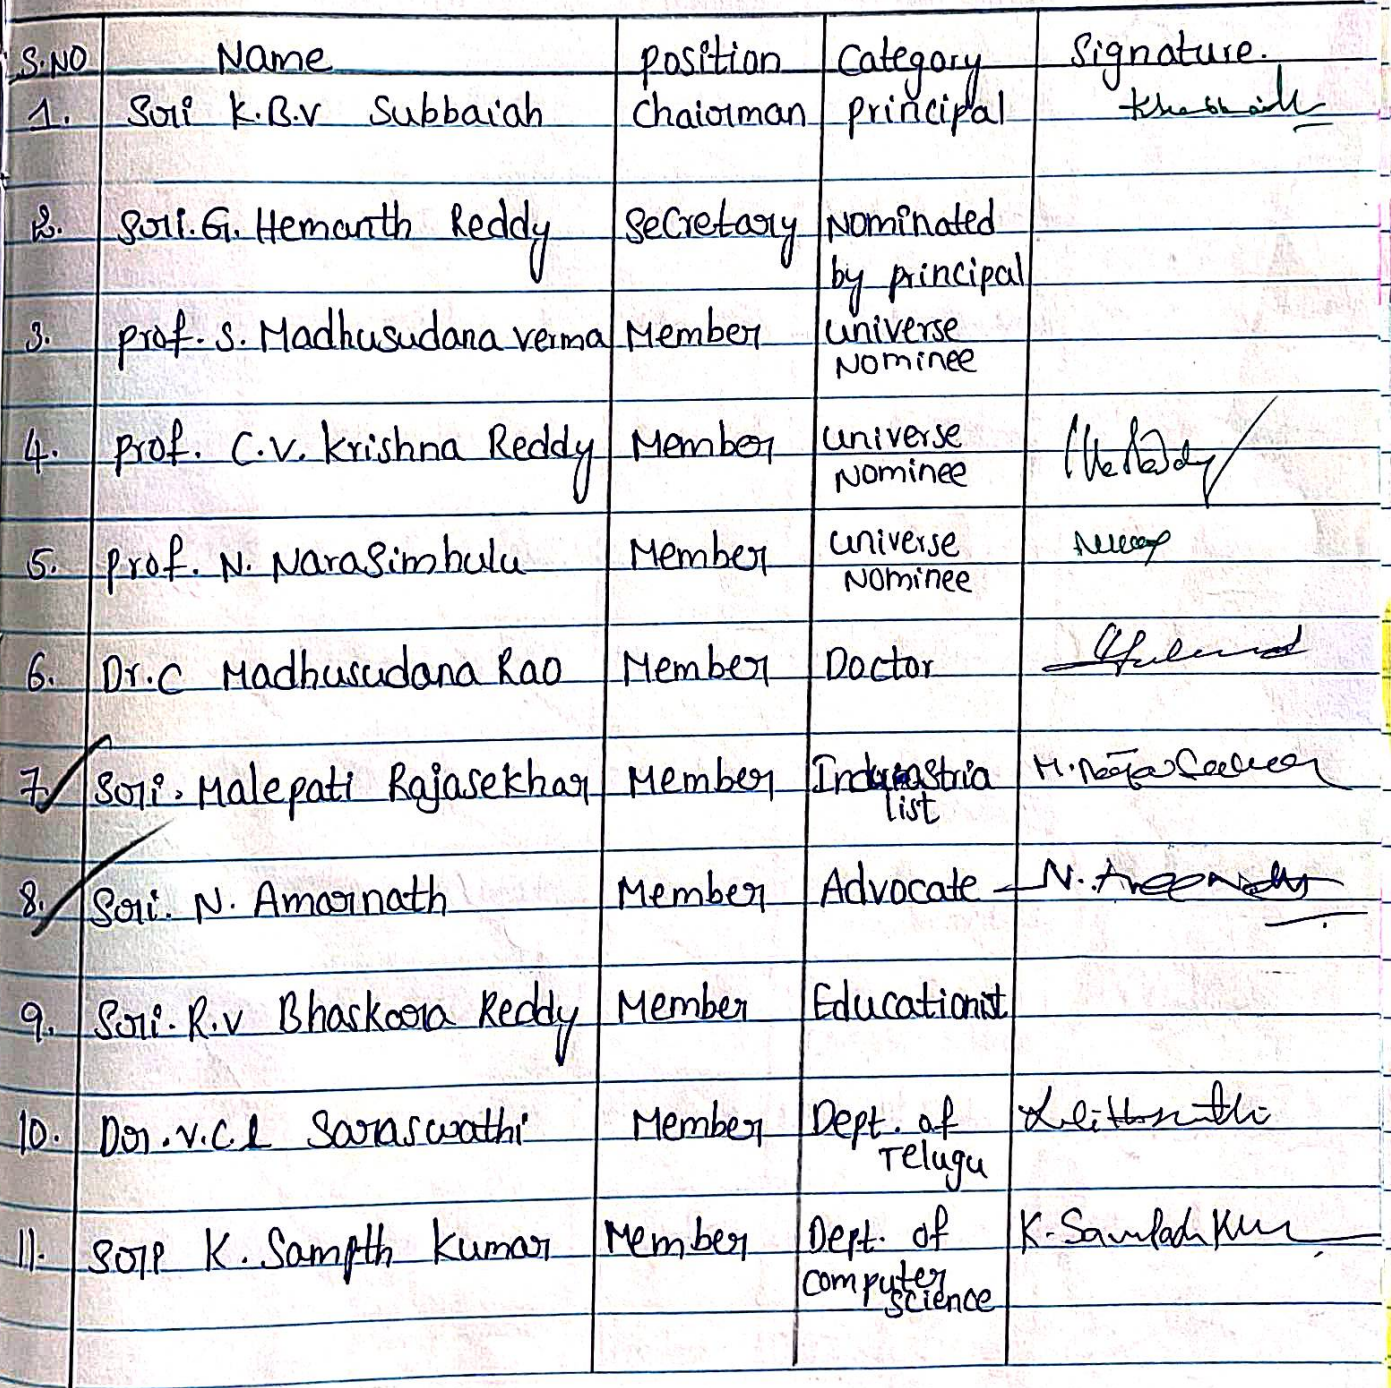 S.NO Name Position Category Signature.
1. Sri K.B.V Subbaiah Chairman Principal
2. Sri. G. Hemanth Reddy Secretary Nominated
by principal
3. Prof. S. Madhusudana Verma Member Universe
Nominee
4. Prof. C.V. Krishna Reddy Member Universe
Nominee
5. Prof. N. Narasimhulu Member Universe
Nominee
6. Dr.C Madhusudana Rao Member Doctor
7. Sri. Malepati Rajasekhar Member Industria
list
8. Sri. N. Amarnath Member Advocate
9. Sri. R.V Bhaskara Reddy Member Educationist
10. Dr. V.C.L Saraswathi Member Dept. of
Telugu
11. Sri K. Sampth Kumar Member Dept. of K. Sampath Kum
computer
science